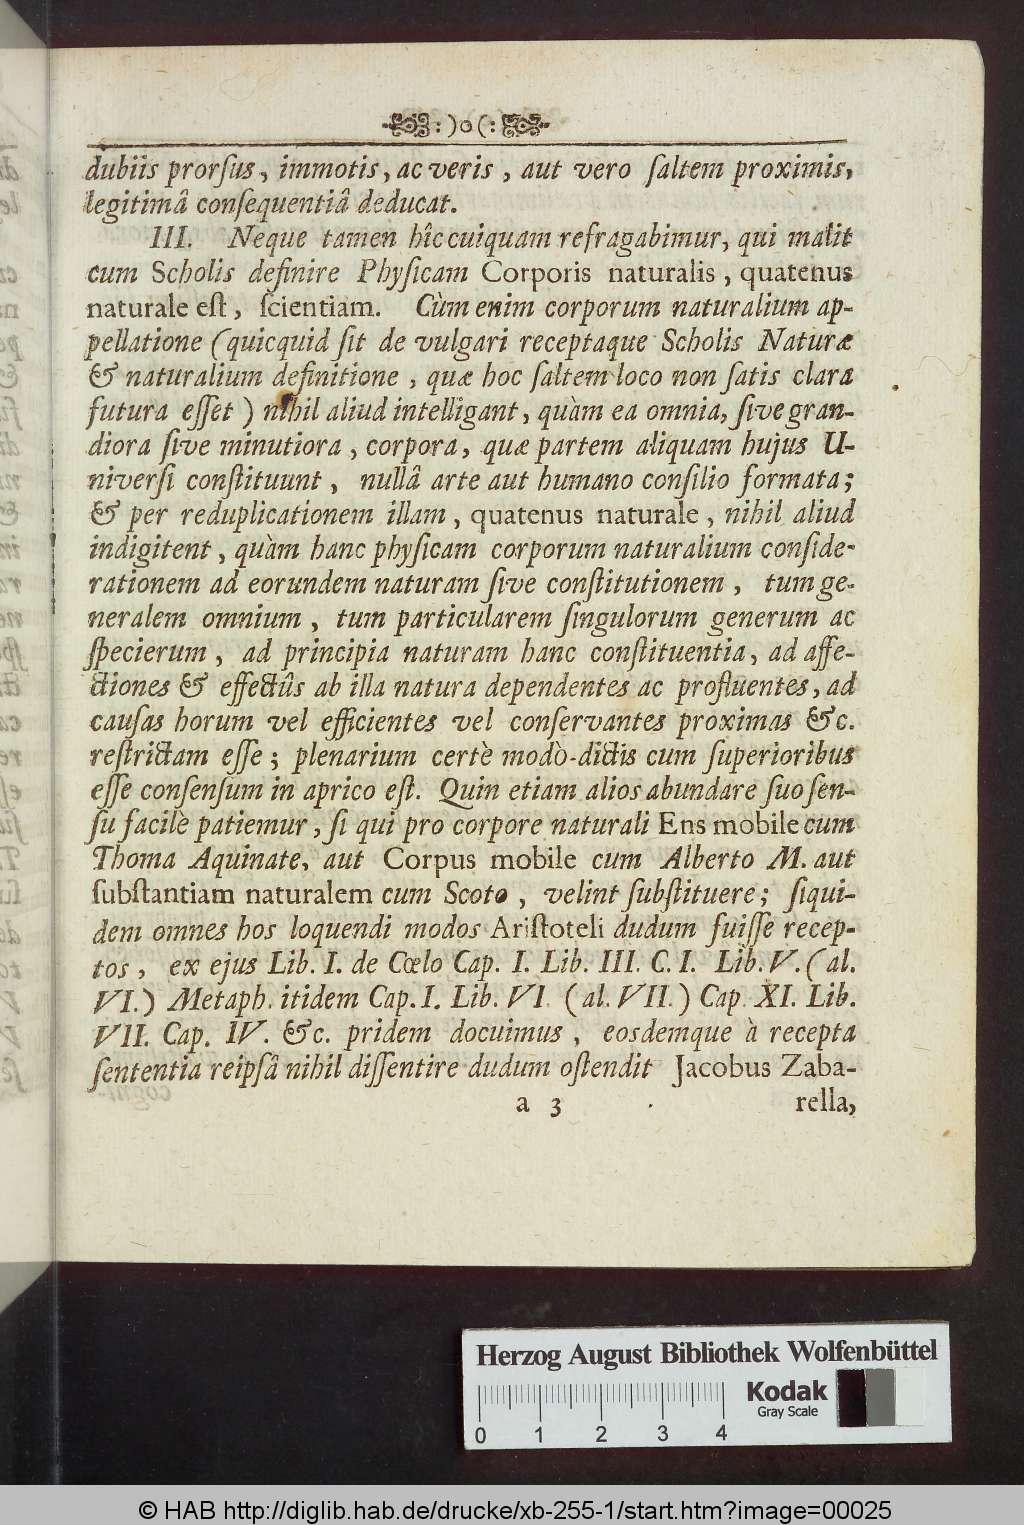 :)o(:
dubiis prorſus, immotis, ac veris, aut vero ſaltem proximis,
legitimâ conſequentiâ deducat.
III. Neque tamen hîc cuiquam refragabimur, qui malit
cum Scholis definire Phyſicam Corporis naturalis, quatenus
naturale eſt, ſcientiam. Cùm enim corporum naturalium ap-
pellatione (quicquid ſit de vulgari receptaque Scholis Naturæ
& naturalium definitione, quæ hoc ſaltem loco non ſatis clara
futura eſſet) nihil aliud intelligant, quàm ea omnia, ſive gran-
diora ſive minutiora, corpora, quæ partem aliquam hujus U-
niverſi conſtituunt, nullâ arte aut humano conſilio formata;
& per reduplicationem illam, quatenus naturale, nihil aliud
indigitent, quàm hanc phyſicam corporum naturalium conſide-
rationem ad eorundem naturam ſive conſtitutionem, tum ge-
neralem omnium, tum particularem ſingulorum generum ac
ſpecierum, ad principia naturam hanc conſtituentia, ad affe-
ctiones & effectûs ab illa natura dependentes ac profluentes, ad
cauſas horum vel efficientes vel conſervantes proximas &c.
reſtrictam eſſe; plenarium certè modò-dictis cum ſuperioribus
eſſe conſenſum in aprico eſt. Quin etiam alios abundare ſuo ſen-
ſu facilè patiemur, ſi qui pro corpore naturali Ens mobile cum
Thoma Aquinate, aut Corpus mobile cum Alberto M. aut
ſubſtantiam naturalem cum Scoto, velint ſubſtituere; ſiqui-
dem omnes hos loquendi modos Ariſtoteli dudum fuiſſe recep-
tos, ex ejus Lib. I. de Cœlo Cap. I. Lib. III. C. I. Lib. V. (al.
VI.) Metaph. itidem Cap. I. Lib. VI. (al. VII.) Cap. XI. Lib.
VII. Cap. IV. &c. pridem docuimus, eosdemque à recepta
ſententia reipſâ nihil diſſentire dudum oſtendit Jacobus Zaba-
a 3 rella,
Herzog August Bibliothek Wolfenbüttel
Kodak
Gray Scale
0 1 2 3 4
© HAB http://diglib.hab.de/drucke/xb-255-1/start.htm?image=00025